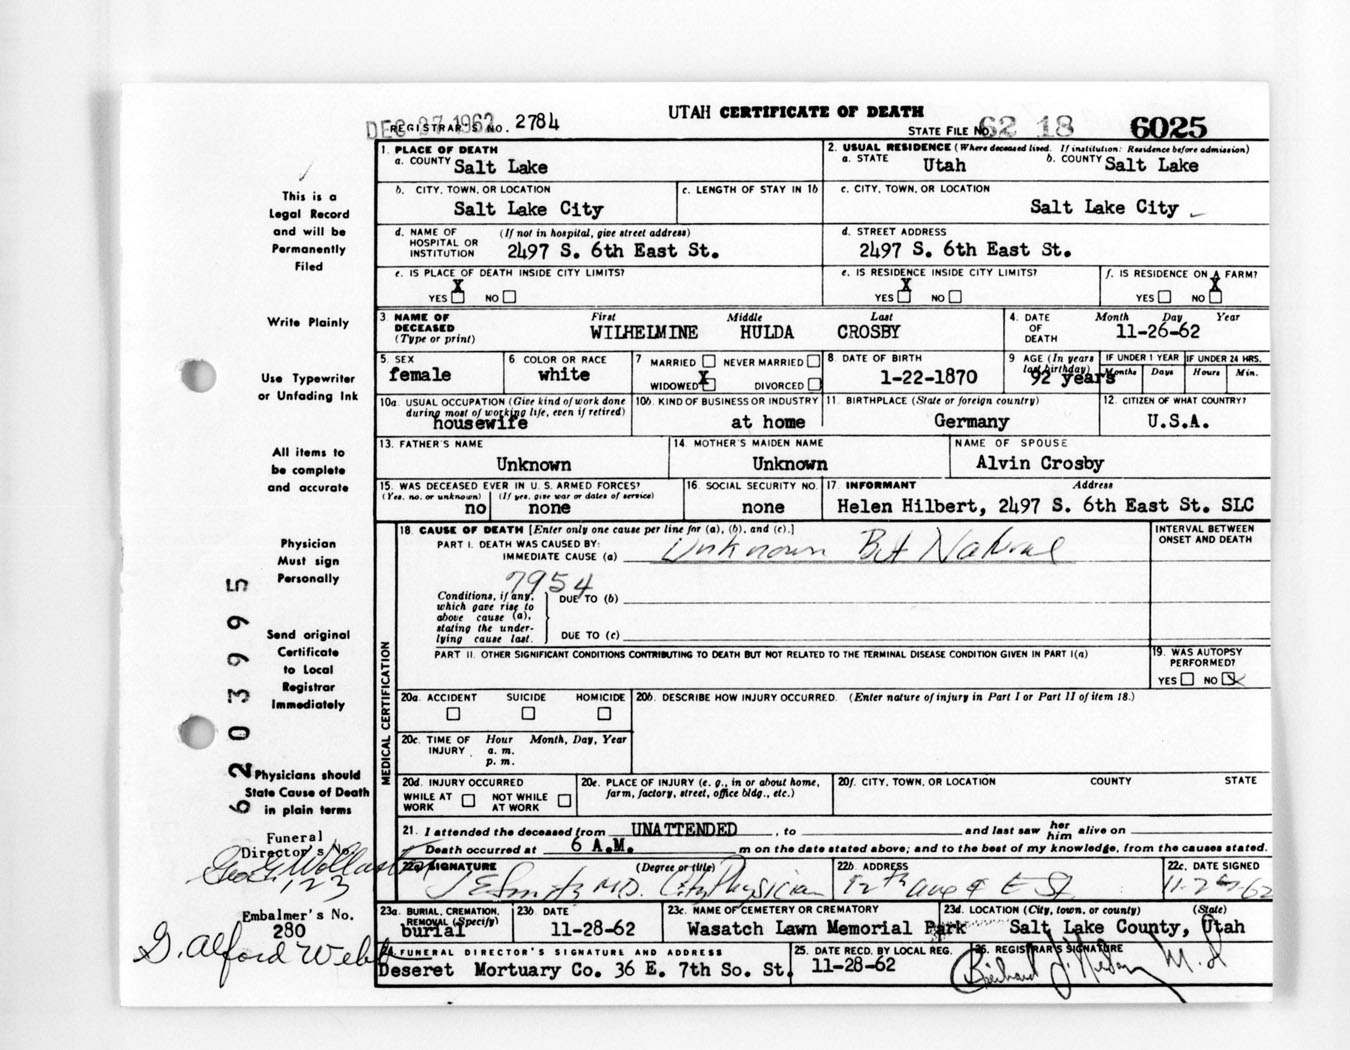 UTAH CERTIFICATE OF DEATH
DEC 27 1962
REGISTRAR'S NO. 2784
STATE FILE NO. 62 18 6025
1. PLACE OF DEATH
a. COUNTY Salt Lake
2. USUAL RESIDENCE (Where deceased lived. If institution: Residence before admission)
a. STATE Utah b. COUNTY Salt Lake
b. CITY, TOWN, OR LOCATION
Salt Lake City
c. LENGTH OF STAY IN 1b
c. CITY, TOWN, OR LOCATION
Salt Lake City
d. NAME OF HOSPITAL OR INSTITUTION (If not in hospital, give street address)
2497 S. 6th East St.
d. STREET ADDRESS
2497 S. 6th East St.
e. IS PLACE OF DEATH INSIDE CITY LIMITS?
YES X NO
e. IS RESIDENCE INSIDE CITY LIMITS?
YES X NO
f. IS RESIDENCE ON A FARM?
YES NO X
3. NAME OF DECEASED (Type or print)
First Middle Last
WILHELMINE HULDA CROSBY
4. DATE OF DEATH Month Day Year
11-26-62
5. SEX
female
6 COLOR OR RACE
white
7 MARRIED NEVER MARRIED
WIDOWED X DIVORCED
8 DATE OF BIRTH
1-22-1870
9 AGE (In years last birthday)
92 years
IF UNDER 1 YEAR Months Days
IF UNDER 24 HRS. Hours Min.
10a. USUAL OCCUPATION (Give kind of work done during most of working life, even if retired)
housewife
10b. KIND OF BUSINESS OR INDUSTRY
at home
11. BIRTHPLACE (State or foreign country)
Germany
12. CITIZEN OF WHAT COUNTRY?
U.S.A.
13. FATHER'S NAME
Unknown
14. MOTHER'S MAIDEN NAME
Unknown
NAME OF SPOUSE
Alvin Crosby
15. WAS DECEASED EVER IN U. S. ARMED FORCES?
(Yes, no, or unknown) (If yes, give war or dates of service)
no none
16. SOCIAL SECURITY NO.
none
17. INFORMANT Address
Helen Hilbert, 2497 S. 6th East St. SLC
18. CAUSE OF DEATH [Enter only one cause per line for (a), (b), and (c).]
PART I. DEATH WAS CAUSED BY:
IMMEDIATE CAUSE (a) Unknown But Natural
INTERVAL BETWEEN ONSET AND DEATH
7954
Conditions, if any, which gave rise to above cause (a), stating the underlying cause last.
DUE TO (b)
DUE TO (c)
PART II. OTHER SIGNIFICANT CONDITIONS CONTRIBUTING TO DEATH BUT NOT RELATED TO THE TERMINAL DISEASE CONDITION GIVEN IN PART I(a)
19. WAS AUTOPSY PERFORMED?
YES NO X
MEDICAL CERTIFICATION
20a. ACCIDENT SUICIDE HOMICIDE
20b. DESCRIBE HOW INJURY OCCURRED. (Enter nature of injury in Part I or Part II of item 18.)
20c. TIME OF INJURY Hour Month, Day, Year
a. m.
p. m.
20d. INJURY OCCURRED
WHILE AT WORK NOT WHILE AT WORK
20e. PLACE OF INJURY (e. g., in or about home, farm, factory, street, office bldg., etc.)
20f. CITY, TOWN, OR LOCATION COUNTY STATE
21. I attended the deceased from UNATTENDED, to and last saw her him alive on
Death occurred at 6 A.M. m on the date stated above; and to the best of my knowledge, from the causes stated.
22a. SIGNATURE (Degree or title)
M.D. City Physician
22b. ADDRESS
12th ave & E St
22c. DATE SIGNED
23a. BURIAL, CREMATION, REMOVAL (Specify)
burial
23b. DATE
11-28-62
23c. NAME OF CEMETERY OR CREMATORY
Wasatch Lawn Memorial Park
23d. LOCATION (City, town, or county) (State)
Salt Lake County, Utah
24. FUNERAL DIRECTOR'S SIGNATURE AND ADDRESS
Deseret Mortuary Co. 36 E. 7th So. St.
25. DATE RECD. BY LOCAL REG.
11-28-62
26. REGISTRAR'S SIGNATURE
M.D
This is a
Legal Record
and will be
Permanently
Filed
Write Plainly
Use Typewriter
or Unfading Ink
All items to
be complete
and accurate
Physician
Must sign
Personally
Send original
Certificate
to Local
Registrar
Immediately
Physicians should
State Cause of Death
in plain terms
6203995
Funeral
Director's No.
123
Embalmer's No.
280
G. Alford Webb